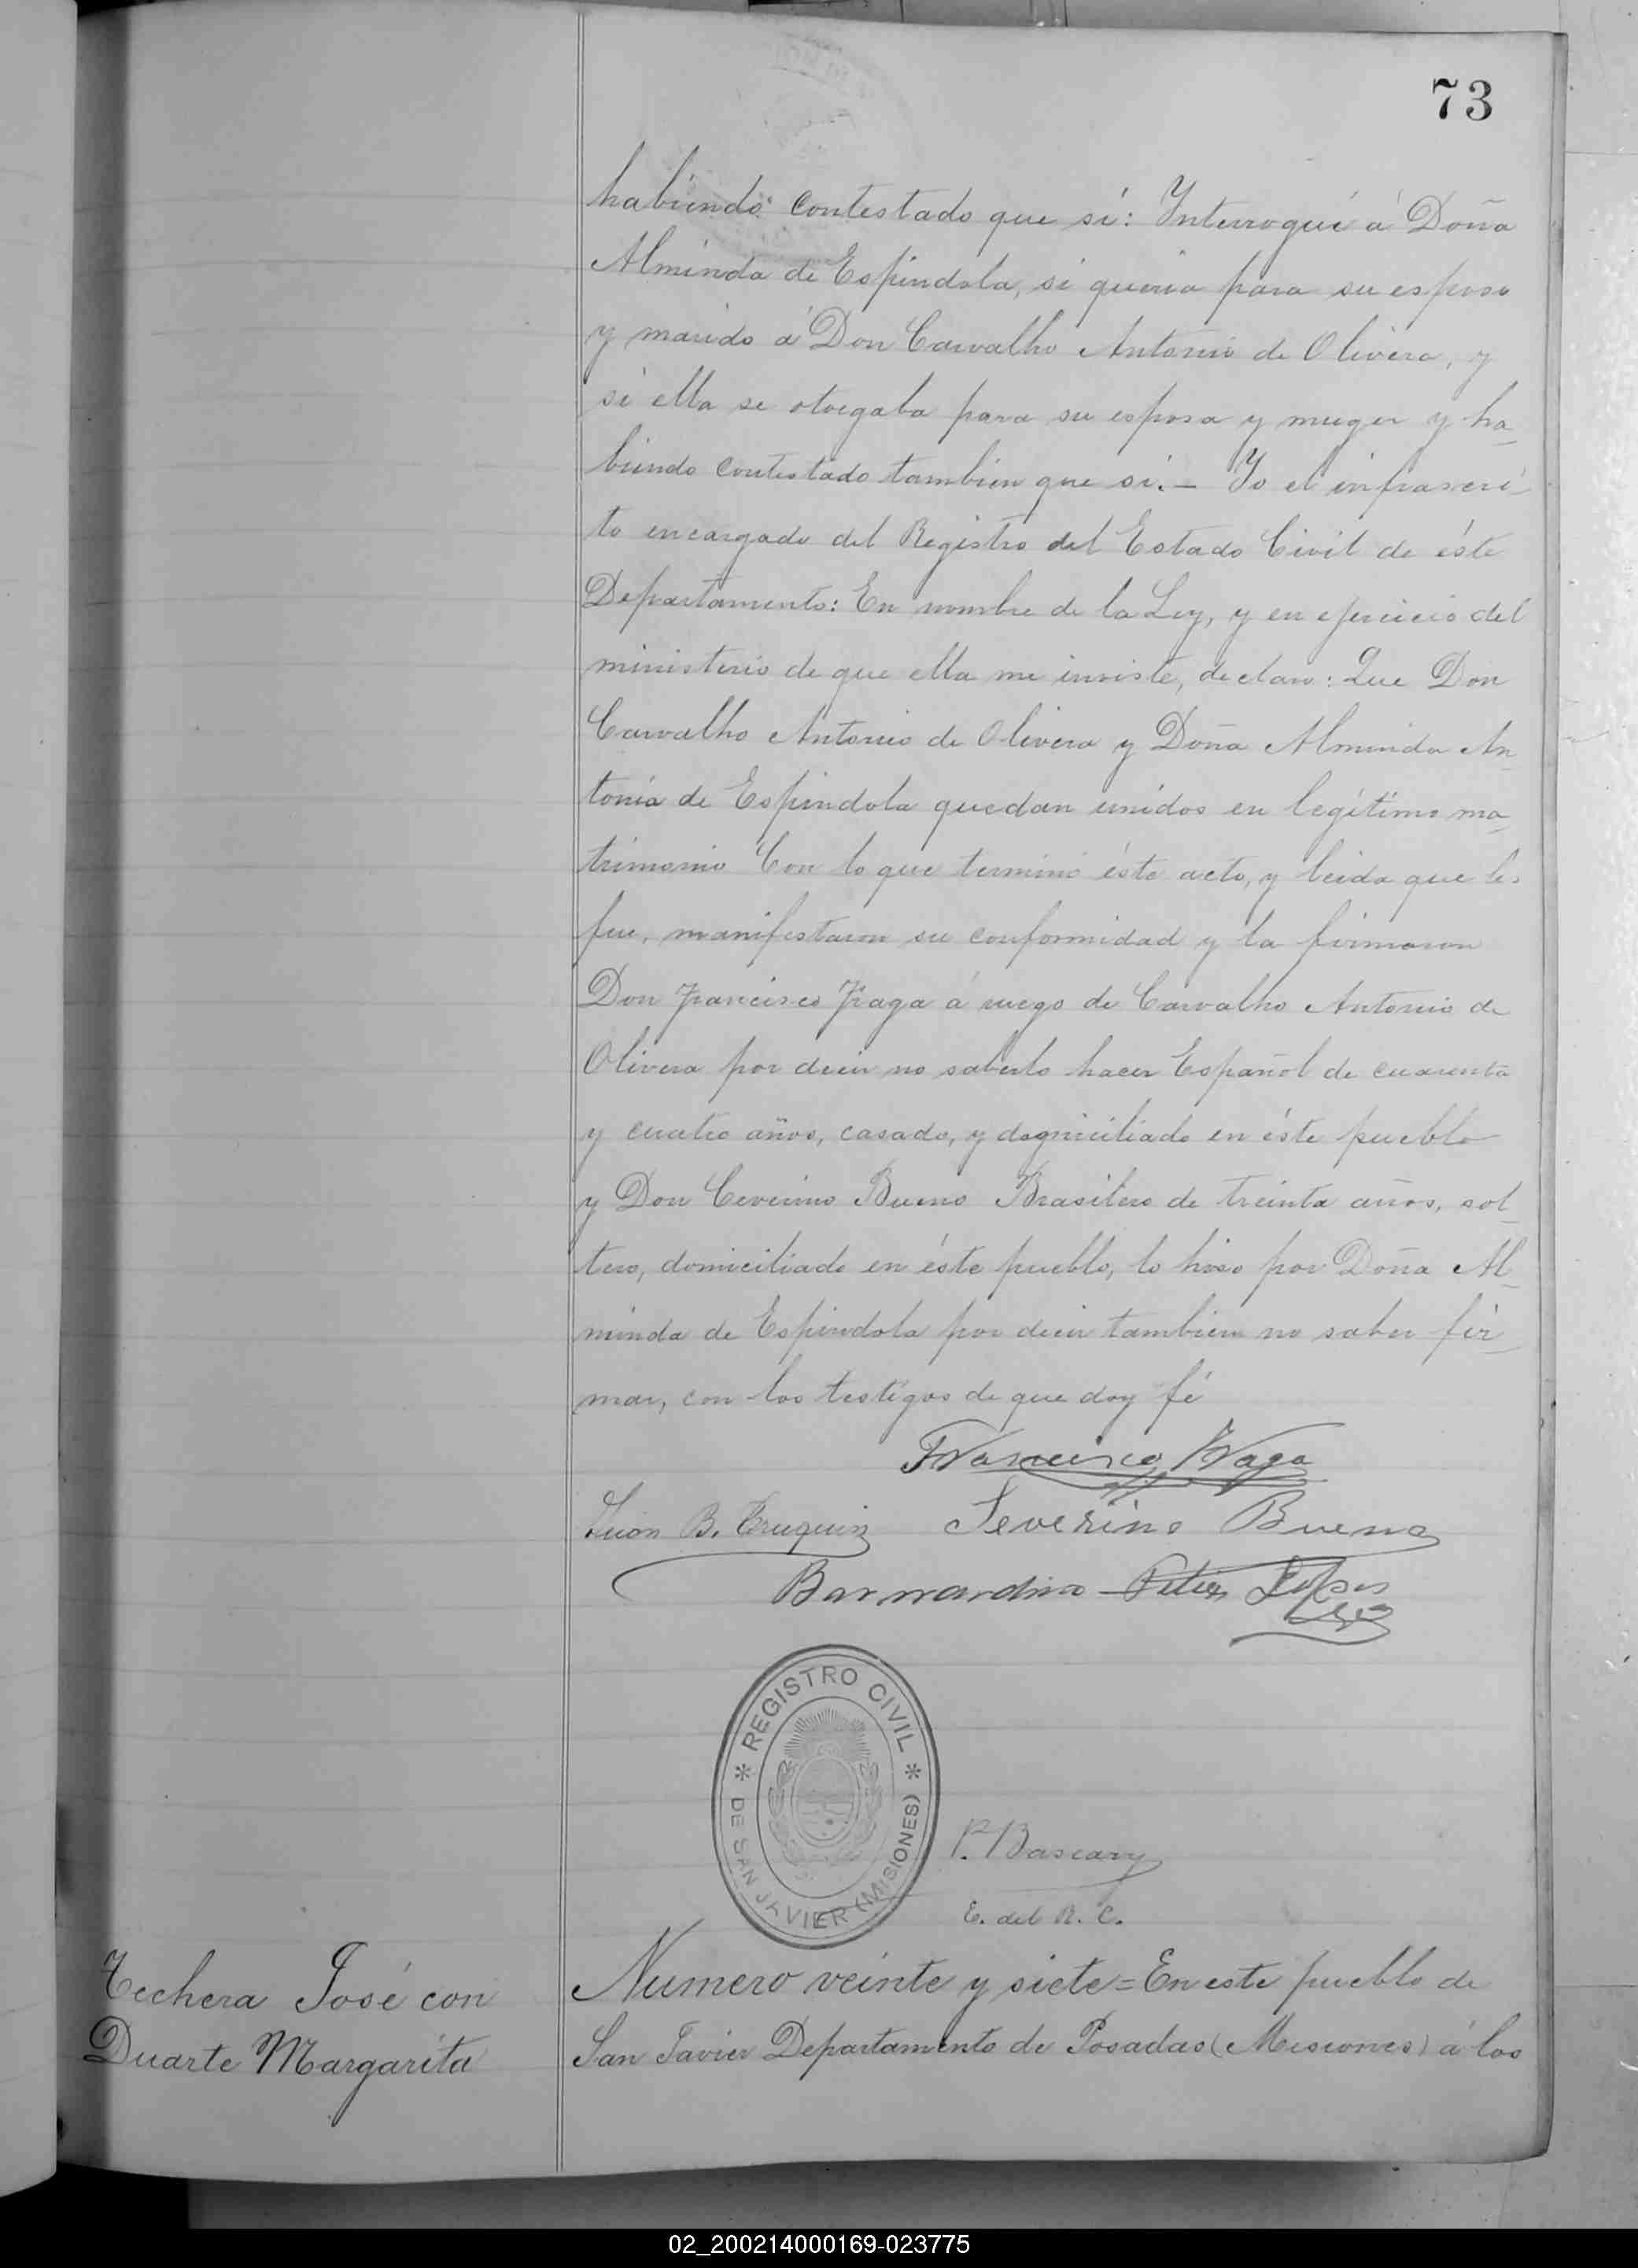 73
habiendo contestado que sí: Interrogué á Doña
Alminda de Espindola, si queria para su esposo
y marido á Don Carvalho Antonio de Olivera, y
si ella se otorgaba para su esposa y muger y ha_
biendo contestado tambien que si. _ Yo el infrascri_
to encargado del Registro del Estado Civil de éste
Departamento: En nombre de la Ley, y en ejercicio del
ministerio de que ella me inviste, declaro: Que Don
Carvalho Antonio de Olivera y Doña Alminda An_
tonia de Espindola quedan unidos en legítimo ma_
trimonio Con lo que terminó éste acto, y leida que les
fue, manifestaron su conformidad y la firmaron
Don Francisco Fraga á ruego de Carvalho Antonio de
Olivera por decir no saberlo hacer Español de cuarenta
y cuatro años, casado, y domiciliado en éste pueblo
y Don Ceverino Bueno Brasilero de treinta años, sol_
tero, domiciliado en éste pueblo, lo hiso por Doña Al_
minda de Espindola por decir tambien no saber fir_
mar, con los testigos de que doy fé
Francisco Fraga
B. Severino Bueno
REGISTRO CIVIL
DE SAN JAVIER (MISIONES)
P. Bascary
E. del R. C.
Techera José con
Duarte Margarita
Numero veinte y siete = En este pueblo de
San Javier Departamento de Posadas (Misiones) á los
02_200214000169-023775